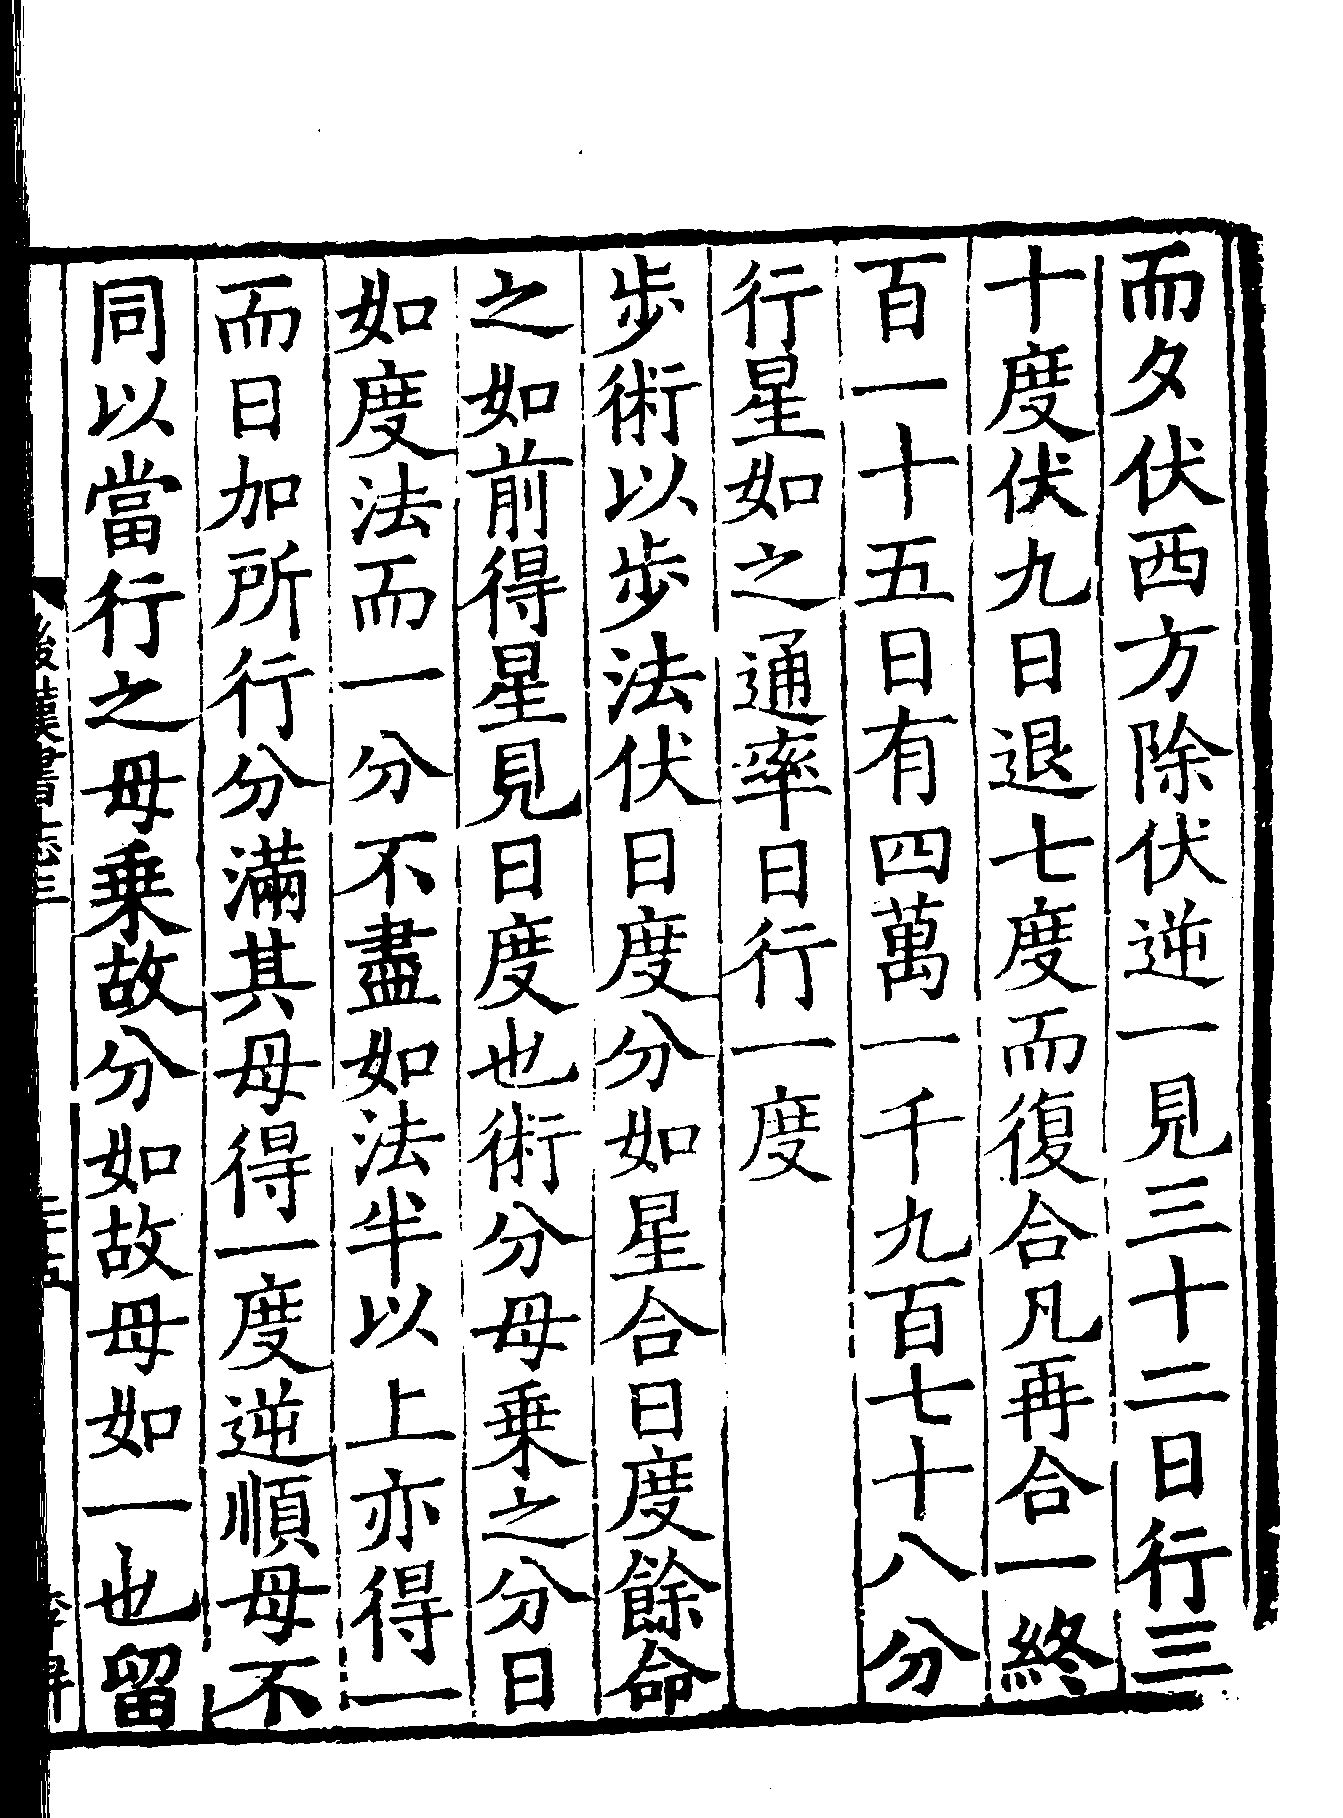 而夕伏西方除伏逆一見三十二日行三
十度伏九日退七度而復合凡再合一終
百一十五日有四萬一千九百七十八分
行星如之通率日行一度
步術以步法伏日度分如星合日度餘命
之如前得星見日度也術分母乗之分日
如度法而一分不盡如法半以上亦得一
而日加所行分滿其母得一度逆順母不
同以當行之母乗故分如故母如一也留
後漢書志三
二十五